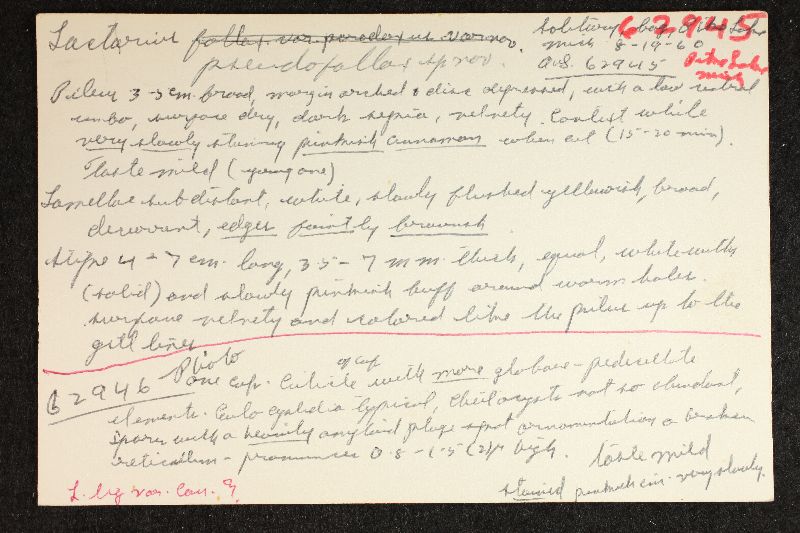 Lactarius fallax var paradoxus var nov.
pseudofallax sp nov.
Solitary bog Pike Lake
Mich 8-19-60
AHS. 62945
62945
Pike Lake
Mich
Pileus 3-5 cm broad, margin arched & disc depressed, with a low umbo
umbo, surface dry, dark sepia, velvety. Context white
very slowly staining pinkish cinnamon when cut (15-20 min).
Taste mild (young one)
Lamellae subdistant, white, slowly flushed yellowish, broad,
decurrent, edges faintly brownish
Stipe 4-7 cm long, 3.5-7 mm thick, equal, white within
(solid) and slowly pinkish buff around worm holes.
surface velvety and colored like the pileus up to the
gill lines
62946 Photo
one cap. Cuticle of cap with more globose-pedicellate
elements. Caulocystidia typical, cheilocysts not so abundant,
spores with a heavily amyloid plage spot ornamentation a broken
reticulum - prominences 0.8-1.5 (2)µ high. taste mild
stained pinkish cin. very slowly.
L. lig var. can. ?